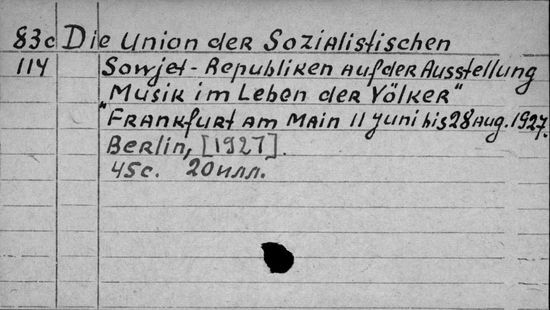 83c Die Union der Sozialistischen
114 Sowjet-Republiken auf der Ausstellung
"Musik im Leben der Völker"
Frankfurt am Main 11 Juni bis 28 Aug. 1927.
Berlin, [1927].
45с. 20илл.